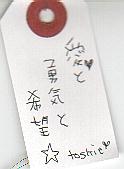 愛♥と
勇気と
希望
☆ toshie♥